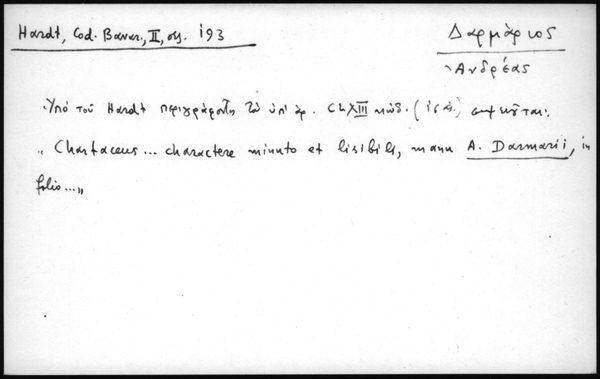 Hardt, Cod. Bavar., II, σς. 193
Δαρμάριος
Ἀνδρέας
Ὑπό τοῦ Hardt περιγράφοντος τὸν ὑπ' ἀρ. CLXIII κώδ.
„ Chartaceus... charactere minuto et lisibili, manu A. Darmarii, in
folio...„